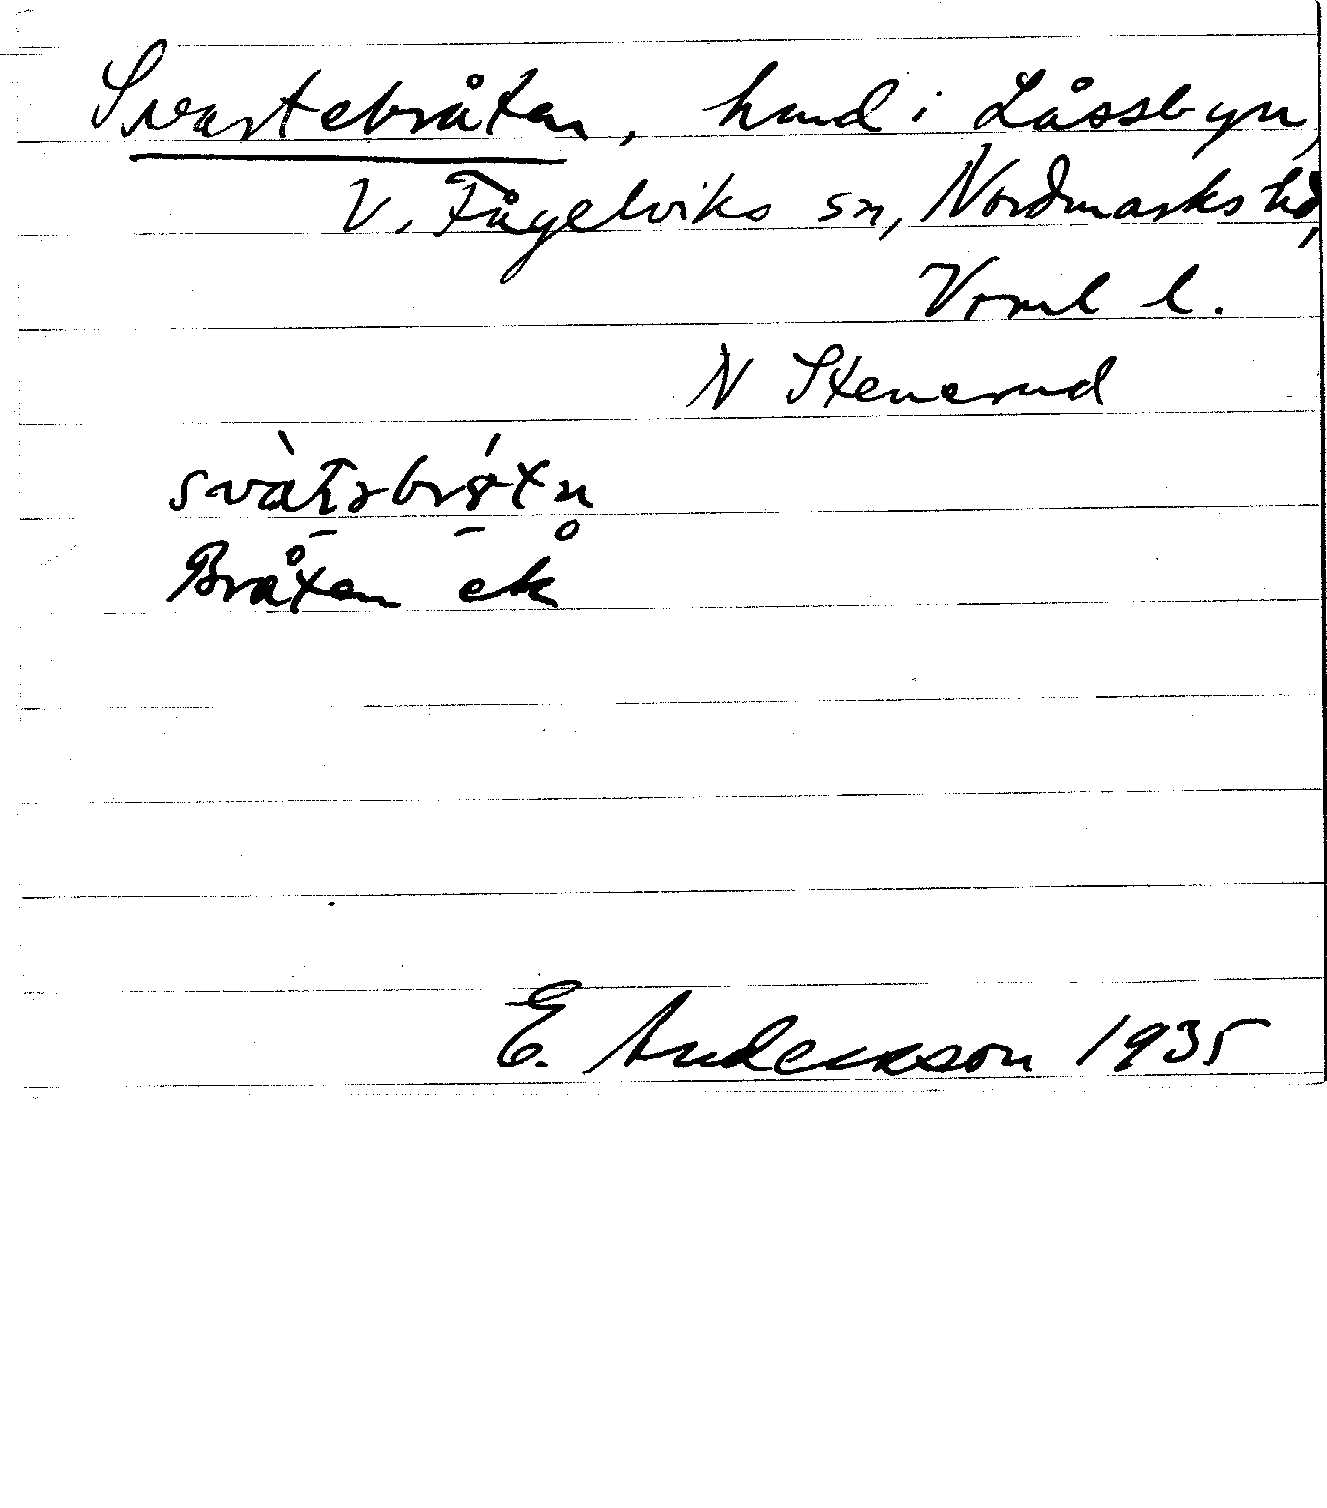 Svartebråten, hmd i Låssbyn,
V. Fågelviks sn, Nordmarks hd,
Vrml l.
N Stenerud
Bråten ek
E. Andersson 1935